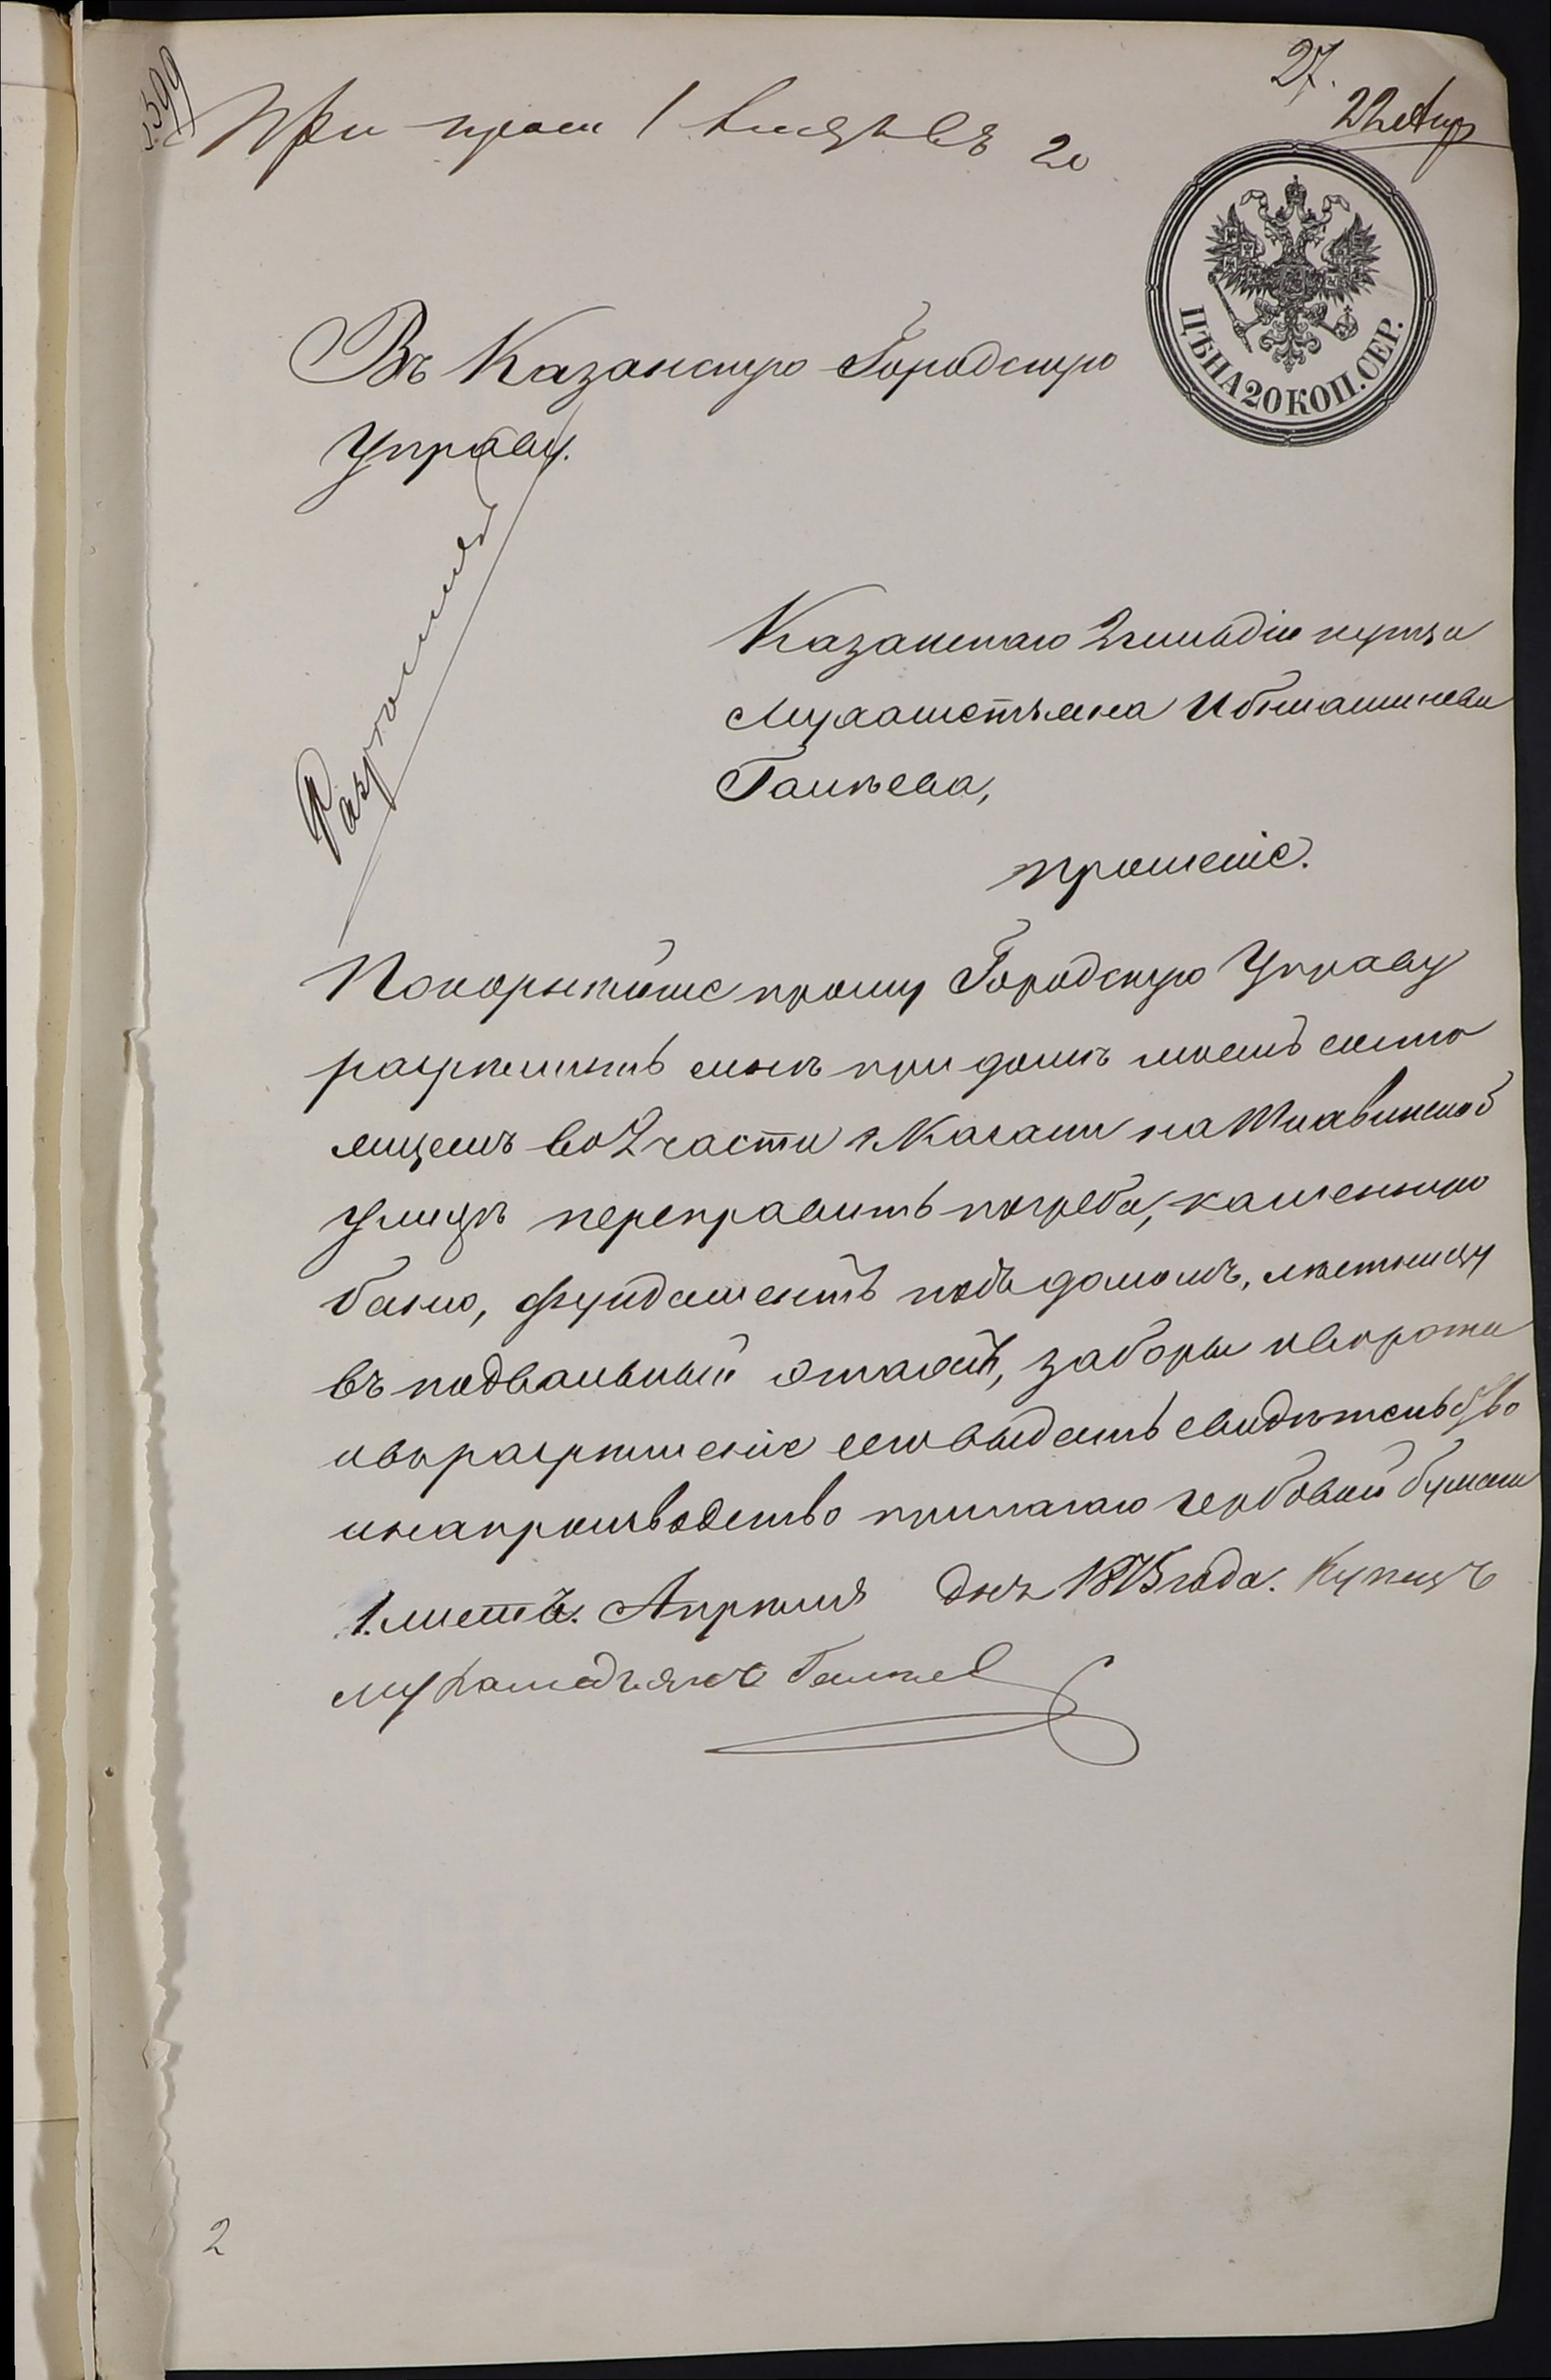 27.
22 Апр
1599
При прош 1 листъ въ 20
ЦѢНА 20 КОП. СЕР.
Въ Казанскую Городскую
Управу.
Разрѣшить
Казанскаго 2 гильдіи купца
Мухаметзяна Ибрагимова
Галѣева,
прошеніе.
Покорнѣйше прошу Городскую Управу
разрѣшить мнѣ при домѣ моемъ состо
ящемъ во 2 части г. Казани на
улицѣ переправить погреба, каменную
баню, фундаментъ подъ домомъ, лѣстницу
въ подвальный этажъ, заборы и вороты
и въ разрѣшеніе сего выдать свидѣтельство
и на производство прилагаю гербовой бумаги
1. листъ. Апрѣля дня 1875 года. Купецъ
Мухамедзянъ Галеев
2